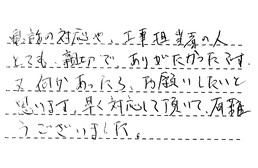 電話の対応や、工事担当者の人
とても親切で、ありがたかったです。
又、何かあったら、お願いしたいと
思います。早く対応して頂いて、有難
うございました。